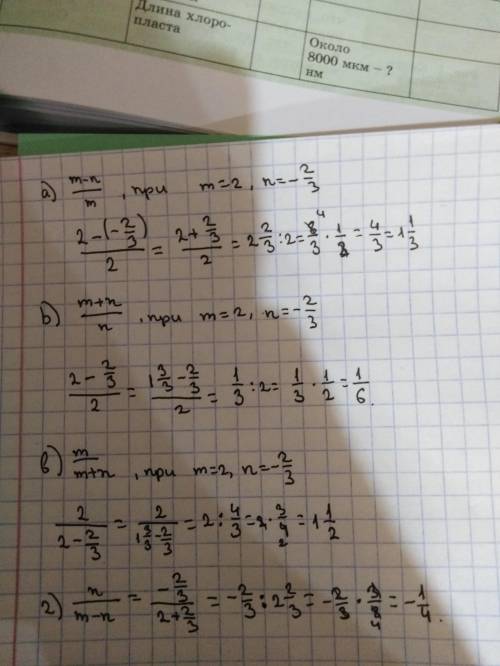 Длина хлоро-
пласта
Около
8000 мкм – ?
нм
а) (m-n)/m , при m=2, n=-2/3
(2-(-2/3))/2 = (2+2/3)/2 = 2 2/3 : 2 = 8/3 · 1/2 = 4/3 = 1 1/3
b) (m+n)/n , при m=2, n=-2/3
(2-2/3)/2 = (1 3/3 - 2/3)/2 = 1/3 : 2 = 1/3 · 1/2 = 1/6.
в) m/(m+n) , при m=2, n=-2/3
2/(2-2/3) = 2/(1 3/3 - 2/3) = 2 : 4/3 = 2 · 3/4 = 1 1/2
г) n/(m-n) = (-2/3)/(2+2/3) = -2/3 : 2 2/3 = -2/3 · 3/8 = -1/4.